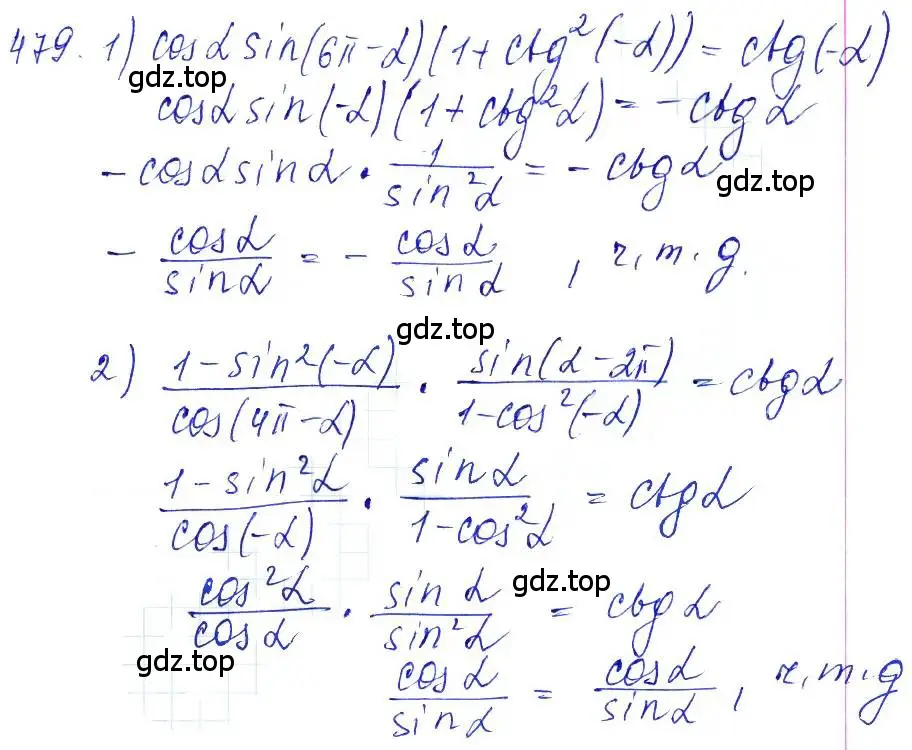 479. 1) cosα sin(6π-α)(1+ctg²(-α)) = ctg(-α)
gdz.top
cosα sin(-α)(1+ctg²α) = -ctgα
-cosα sinα · 1/sin²α = -ctgα
gdz.top
- cosα/sinα = - cosα/sinα , ч.т.д.
gdz.top
2) (1-sin²(-α))/cos(4π-α) · sin(α-2π)/(1-cos²(-α)) = ctgα
(1-sin²α)/cos(-α) · sinα/(1-cos²α) = ctgα
gdz.top
cos²α/cosα · sinα/sin²α = ctgα
gdz.top
cosα/sinα = cosα/sinα , ч.т.д